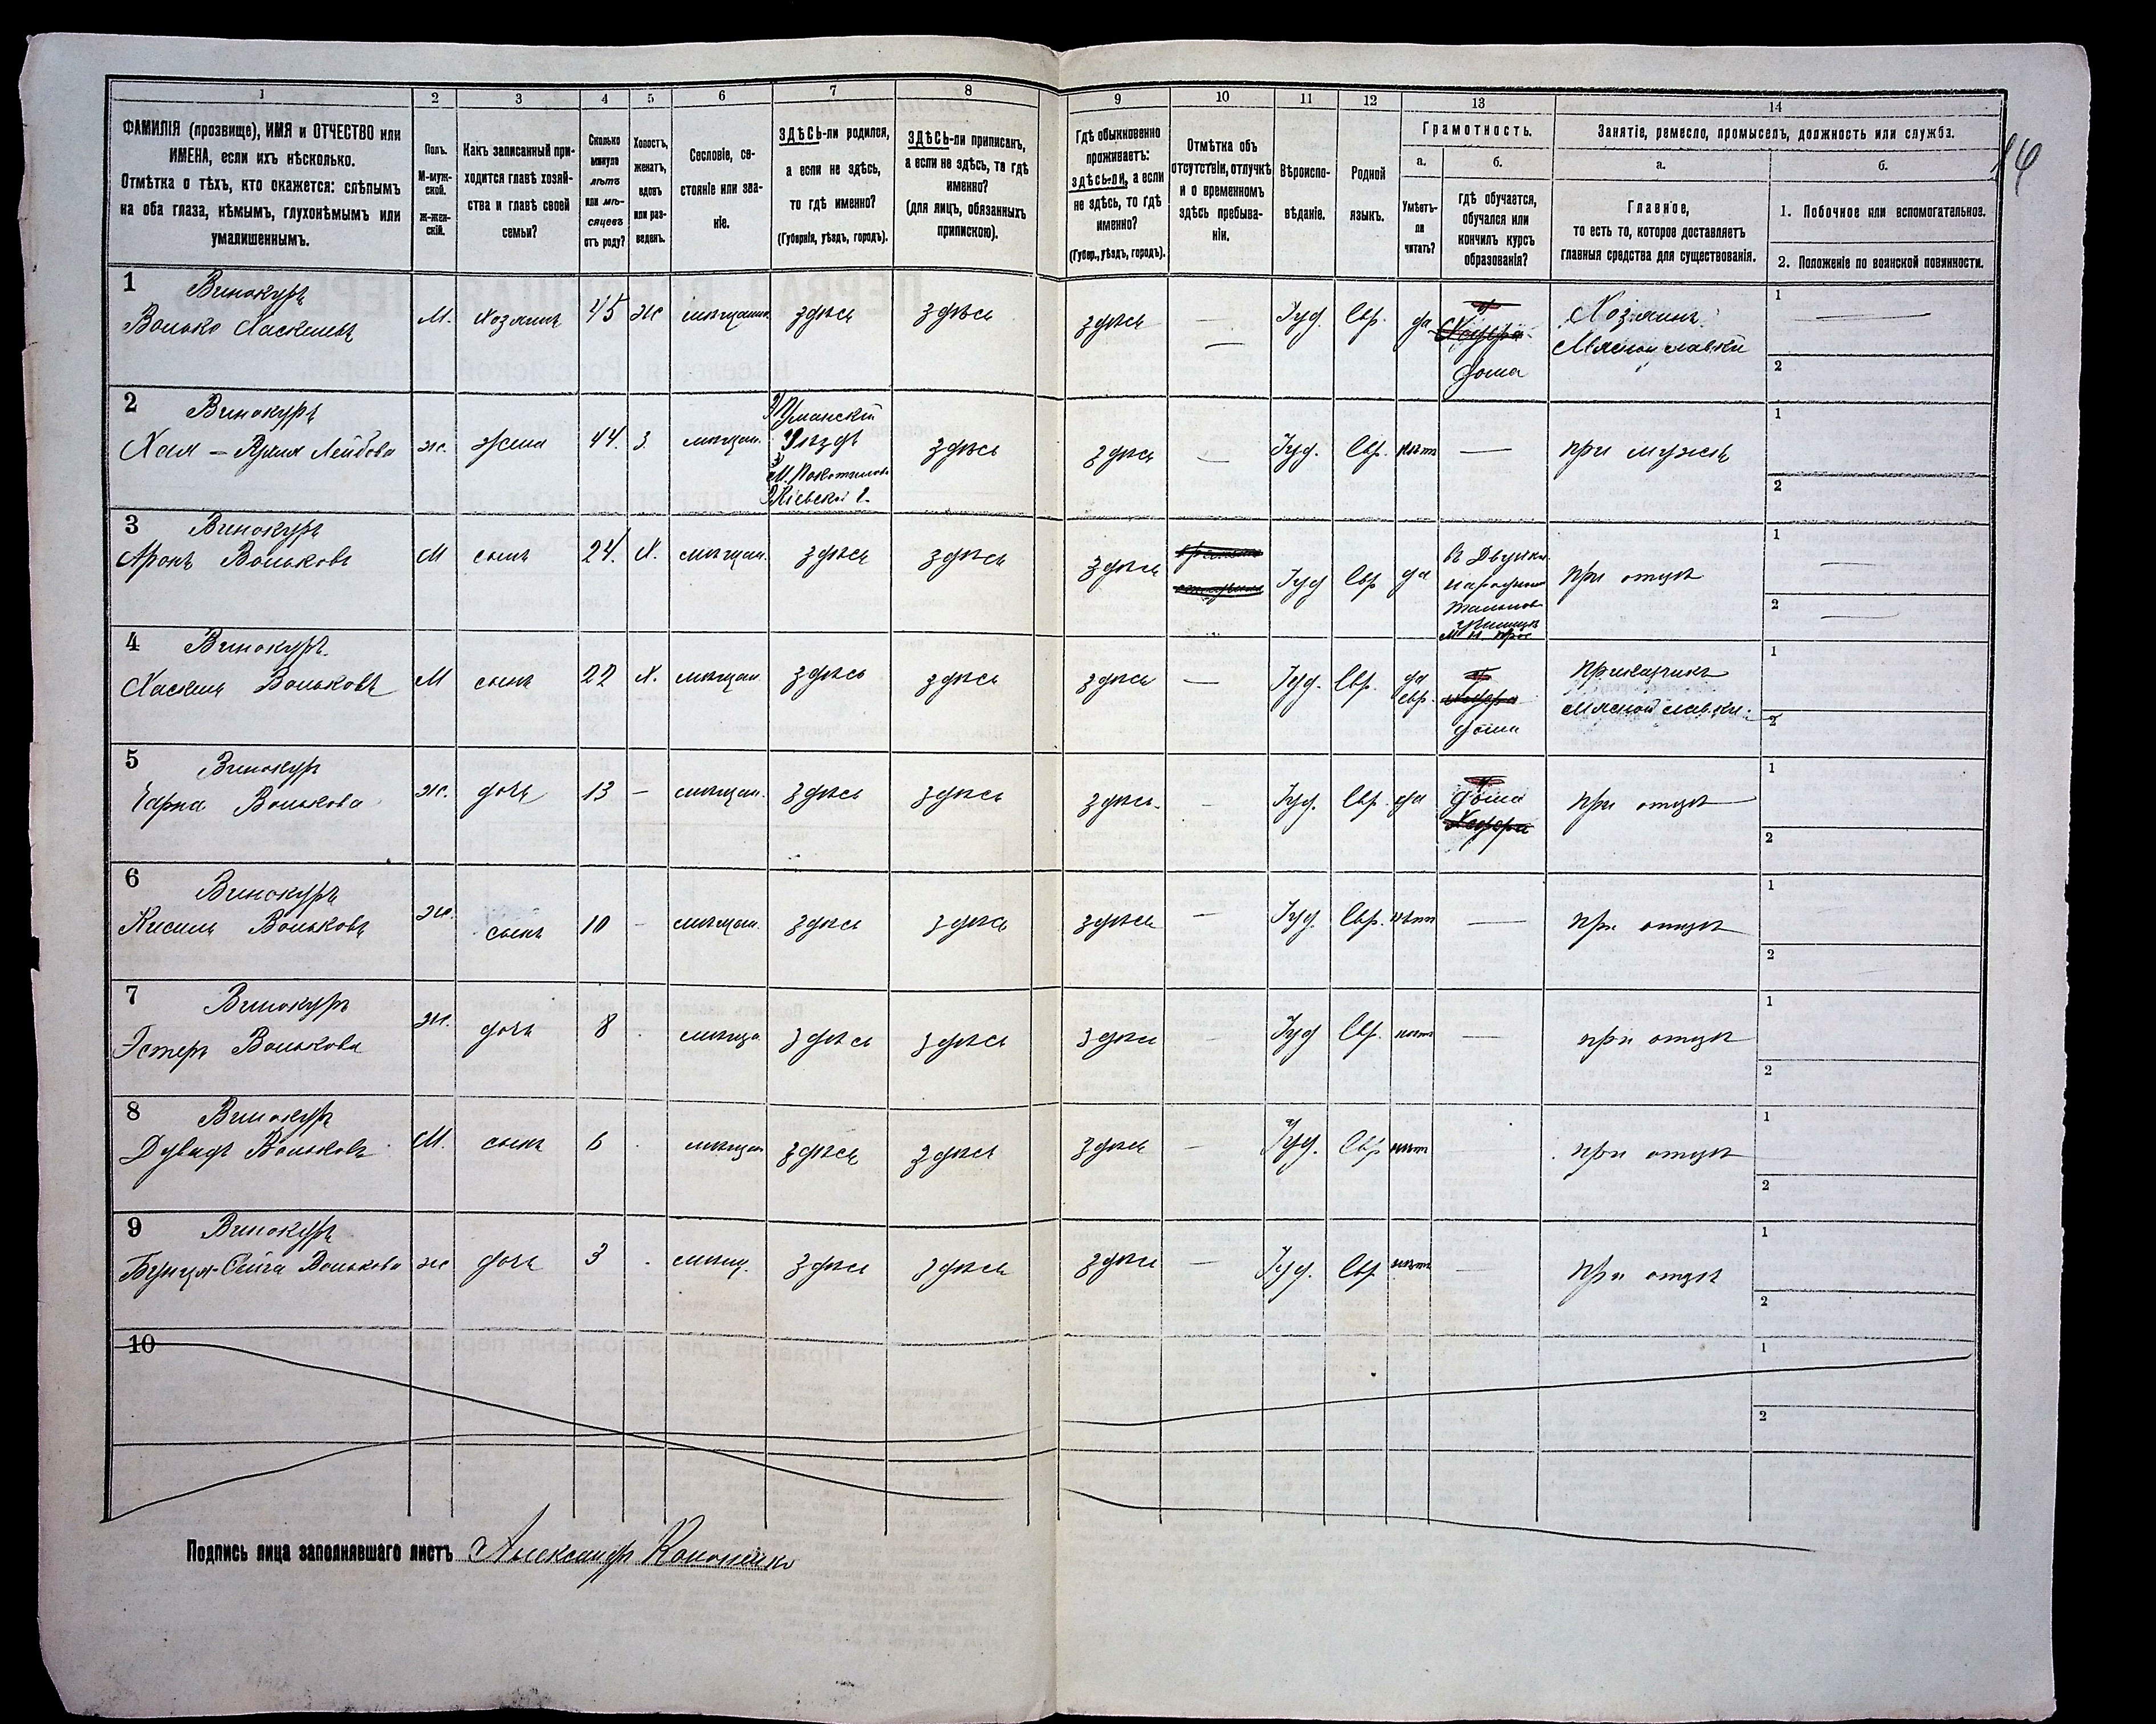 1
ФАМИЛІЯ (прозвище), ИМЯ и ОТЧЕСТВО или
ИМЕНА, если ихъ нѣсколько.
Отмѣтка о тѣхъ, кто окажется: слѣпымъ
на оба глаза, нѣмымъ, глухонѣмымъ или
умалишеннымъ.
2
Полъ.
М-муж-
ской.
Ж-жен-
скій.
3
Какъ записанный при-
ходится главѣ хозяй-
ства и главѣ своей
семьи?
4
Сколько
минуло
лѣтъ
или мѣ-
сяцевъ
отъ роду?
5
Холостъ,
женатъ,
вдовъ
или раз-
веденъ.
6
Сословіе, со-
стояніе или зва-
ніе.
7
ЗДѢСЬ-ли родился,
а если не здѣсь,
то гдѣ именно?
(Губернія, уѣздъ, городъ).
8
ЗДѢСЬ-ли приписанъ,
а если не здѣсь, то гдѣ
именно?
(для лицъ, обязанныхъ
припискою).
9
Гдѣ обыкновенно
проживаетъ:
здѣсь-ли, а если
не здѣсь, то гдѣ
именно?
(Губер., уѣздъ, городъ).
10
Отмѣтка объ
отсутствіи, отлучкѣ
и о временномъ
здѣсь пребыва-
ніи.
11
Вѣроиспо-
вѣданіе.
12
Родной
языкъ.
13
Грамотность.
а.
Умѣетъ-
ли
читать?
б.
гдѣ обучается,
обучался или
кончилъ курсъ
образованія?
14
Занятіе, ремесло, промыселъ, должность или служба.
а.
Главное,
то есть то, которое доставляетъ
главныя средства для существованія.
б.
1. Побочное или вспомогательное.
2. Положеніе по воинской повинности.
1 Винокуръ
Волько Хаскелевъ
М. Хозяинъ 45 ж мѣщанин здѣсь здѣсь здѣсь — Іуд. Евр. да дома
Хозяинъ
Мясной лавки
1
2
2 Винокуръ
Хая — Лейбова
ж. жена 44. З. мѣщан.
Уманскій
Уѣздъ
Кіевской г.
здѣсь здѣсь — Іуд. Евр. нѣтъ — при мужѣ
1
2
3 Винокуръ
Аронъ Вольковъ
М сынъ 24. Х. мѣщан. здѣсь здѣсь здѣсь Іуд Евр да
при отцѣ
1
2
4 Винокуръ.
Хаскель Вольковъ
М сынъ 22 Х. мѣщан здѣсь здѣсь здѣсь — Іуд. Евр. да
евр.
дома
Прикащикъ
Мясной лавки.
1
2
5 Винокур
Волькова
ж. дочь 13 — мѣщан. здѣсь здѣсь здѣсь. — Іуд. Евр. да дома при отцѣ
1
2
6 Винокуръ
Кисиль Вольковъ
ж. сынъ 10 - мѣщан. здѣсь здѣсь здѣсь — Іуд. Евр. нѣтъ — при отцѣ
1
2
7 Винокуръ
Эстеръ Волькова
ж. дочь 8 мѣща здѣсь здѣсь здѣсь - Іуд Евр. нѣтъ — при отцѣ
1
2
8 Винокуръ
Дувидъ Вольковъ
М. сынъ 6 мѣщан здѣсь здѣсь здѣсь — Іуд. Евр нѣтъ при отцѣ
1
2
9 Винокуръ
Волькова
ж дочь 3 мѣщ. здѣсь здѣсь здѣсь — Іуд. Евр нѣтъ — при отцѣ
1
2
10
1
2
Подпись лица заполнявшаго листъ Александръ Кононенко